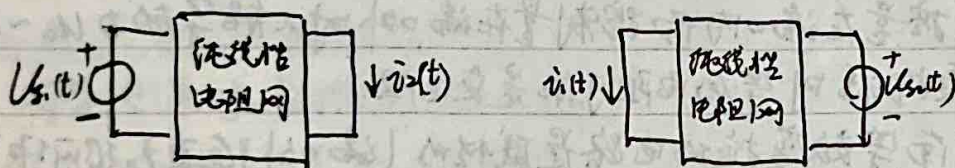 +
Us₁(t)
-
纯线性
电阻网
↓ i₂(t)
i₁(t) ↓
纯线性
电阻网
+
Us₂(t)
-